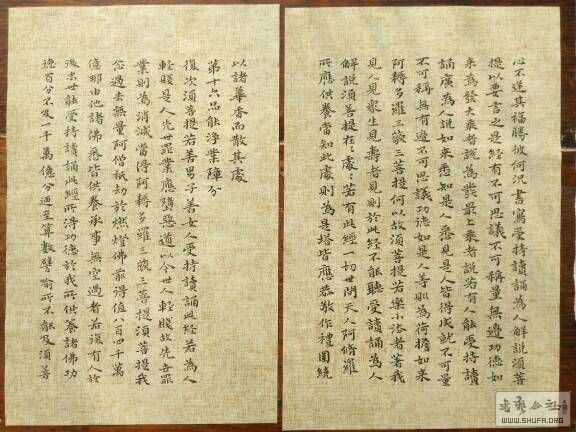 心不逆其福勝彼何況書寫受持讀誦為人解說須菩
提以要言之是經有不可思議不可稱量無邊功德如
來為發大乘者說為發最上乘者說若有人能受持讀
誦廣為人說如來悉知是人悉見是人皆得成就不可量
不可稱無有邊不可思議功德如是人等則為荷擔如來
阿耨多羅三藐三菩提何以故須菩提若樂小法者著我
見人見眾生見壽者見則於此經不能聽受讀誦為人
解說須菩提在在處處若有此經一切世間天人阿脩羅
所應供養當知此處則為是塔皆應恭敬作禮圍繞
以諸華香而散其處
第十六品能淨業障分
復次須菩提若善男子善女人受持讀誦此經若為人
輕賤是人先世罪業應墮惡道以今世人輕賤故先世罪
業則為消滅當得阿耨多羅三藐三菩提須菩提我
念過去無量阿僧祇劫於燃燈佛前得值八百四千萬
億那由他諸佛悉皆供養承事無空過者若復有人於
後末世能受持讀誦此經所得功德於我所供養諸佛功
德百分不及一千萬億分乃至算數譬喻所不能及須菩
書藝公社
WWW.SHUFA.ORG